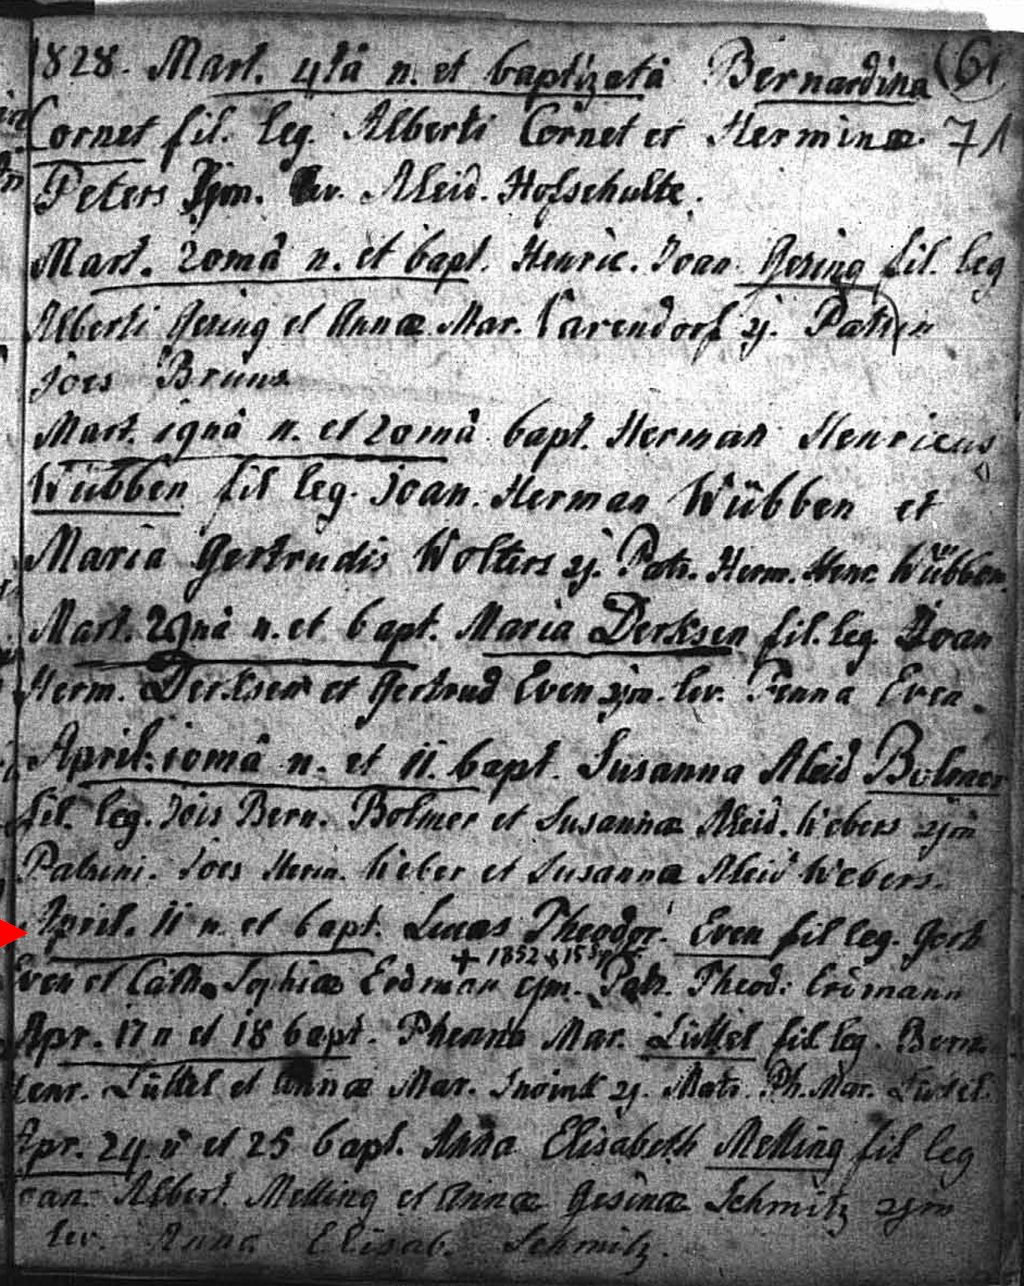 1828. Mart. 4tâ n. et baptizatâ Bernardina (61
Cornet fil. leg. Alberti Cornet et Herminæ 71
Peters Aleid. Hofschulte.
Mart. 20mâ n. et bapt. Henric. Joan. Gering fil. leg
Alberti Gering et Annæ Mar. Varendorf zj.
Joes Bruns
Mart. 19nâ n. et 20mâ bapt. Herman Henricus
Wübben fil leg. Joan. Herman Wübben et
Maria Gertrudis Wolters zj. Patr. Herm. Henr. Wübben
Mart. 29nâ n. et bapt. Maria Derksen fil. leg. Joan
Herm. Derksen et Gertrud Even zjm. lev. Fenna Even.
April. 10mâ n. et 11. bapt. Susanna Aleid Bolmer
fil. leg. Jois Bern. Bolmer et Susannæ Aleid. Webers zjm
Patrini. Joes Herm. Weber et Susanna Aleid Webers.
April. 11 n. et bapt. Lucas Theodor. Even fil leg. Gerh
+ 1852
Even et Cath. Sophiæ Erdman zjm. Patr. Theod. Erdmann
Apr. 17 n et 18 bapt. Phenna Mar. Lüttel fil leg. Bern.
Henr. Lüttel et Annæ Mar. zj. Matr. Ph. Mar. Lüttel.
Apr. 24 n et 25 bapt. Anna Elisabeth Melling fil leg
Joan. Albert. Melling et Annæ Gesinæ Schmitz zjm
lev. Anna Elisab. Schmitz.